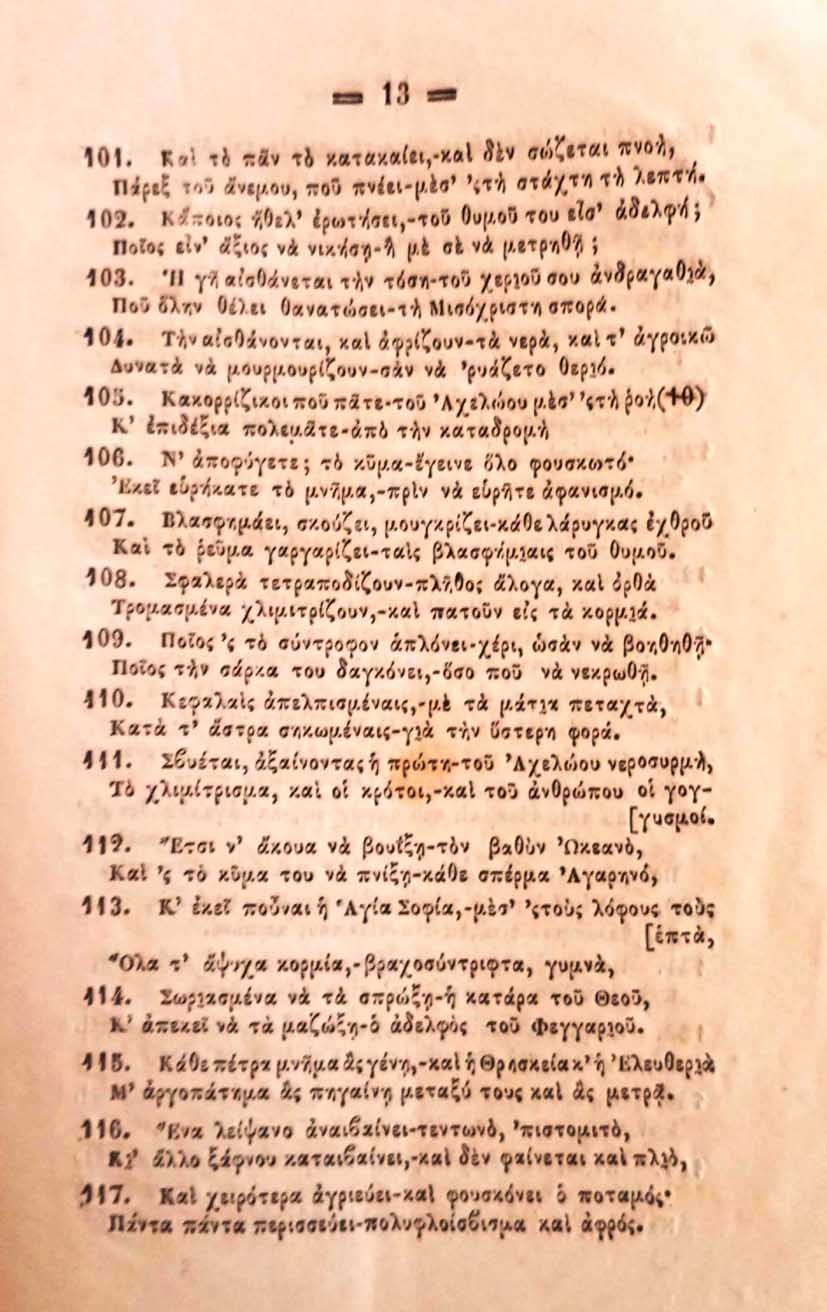 = 13 =
101. Καὶ τὸ πᾶν τὸ κατακαίει,-καὶ δὲν σώζεται πνοὴ,
Πάρεξ τοῦ ἄνεμου, ποῦ πνέει-μὲσ' 'ςτὴ στάχτη τὴ λεπτή.
102. Κἄποιος ἤθελ' ἐρωτήσει,-τοῦ θυμοῦ του εἶσ' ἀδελφή;
Ποῖος εἶν' ἄξιος νὰ νικήσῃ-ἢ μὲ σὲ νὰ μετρηθῇ;
103. Ἡ γῆ αἰσθάνεται τὴν τόση-τοῦ χεριοῦ σου ἀνδραγαθιὰ,
Ποῦ ὅλην θέλει θανατώσει-τὴ Μισόχριστη σπορά.
104. Τὴν αἰσθάνονται, καὶ ἀφρίζουν-τὰ νερὰ, καὶ τ' ἀγροικῶ
Δυνατὰ νὰ μουρμουρίζουν-σὰν νὰ 'ρυάζετο θεριό.
105. Κακορρίζικοι ποῦ πᾶτε-τοῦ Ἀχελώου μὲσ' 'ςτὴ ῥοὴ(10)
Κ' ἐπιδέξια πολεμᾶτε-ἀπὸ τὴν καταδρομὴ
106. Ν' ἀποφύγετε; τὸ κῦμα-ἔγεινε ὅλο φουσκωτό·
Ἐκεῖ εὑρήκατε τὸ μνῆμα,-πρὶν νὰ εὑρῆτε ἀφανισμό.
107. Βλασφημάει, σκούζει, μουγκρίζει-κάθε λάρυγκας ἐχθροῦ
Καὶ τὸ ῥεῦμα γαργαρίζει-ταὶς βλασφήμιαις τοῦ θυμοῦ.
108. Σφαλερὰ τετραποδίζουν-πλῆθος ἄλογα, καὶ ὀρθὰ
Τρομασμένα χλιμιτρίζουν,-καὶ πατοῦν εἰς τὰ κορμιά.
109. Ποῖος 'ς τὸ σύντροφον ἁπλόνει-χέρι, ὡσὰν νὰ βοηθηθῇ·
Ποῖος τὴν σάρκα του δαγκόνει,-ὅσο ποῦ νὰ νεκρωθῇ.
110. Κεφαλαὶς ἀπελπισμέναις,-μὲ τὰ μάτια πεταχτὰ,
Κατὰ τ' ἄστρα σηκωμέναις-γιὰ τὴν ὕστερη φορά.
111. Σβυέται, ἀξαίνοντας ἡ πρώτη-τοῦ Ἀχελώου νεροσυρμὴ,
Τὸ χλιμίτρισμα, καὶ οἱ κρότοι,-καὶ τοῦ ἀνθρώπου οἱ γογ-
[γυσμοί.
112. Ἔτσι ν' ἄκουα νὰ βουΐξῃ-τὸν βαθὺν Ὠκεανὸ,
Καὶ 'ς τὸ κῦμα του νὰ πνίξῃ-κάθε σπέρμα Ἀγαρηνό,
113. Κ' ἐκεῖ ποὖναι ἡ Ἁγία Σοφία,-μὲσ' 'ςτοὺς λόφους τοὺς
[ἑπτὰ,
Ὅλα τ' ἄψυχα κορμία,-βραχοσύντριφτα, γυμνὰ,
114. Σωριασμένα νὰ τὰ σπρώξῃ-ἡ κατάρα τοῦ Θεοῦ,
Κ' ἀπεκεῖ νὰ τὰ μαζώξῃ-ὁ ἀδελφὸς τοῦ Φεγγαριοῦ.
115. Κάθε πέτρα μνῆμα ἂς γένῃ,-καὶ ἡ Θρησκεία κ' ἡ Ἐλευθεριὰ
Μ' ἀργοπάτημα ἂς πηγαίνῃ μεταξύ τους καὶ ἂς μετρᾷ.
116. Ἕνα λείψανο ἀναιβαίνει-τεντωνὸ, 'πιστομιτὸ,
Κι' ἄλλο ξάφνου καταιβαίνει,-καὶ δὲν φαίνεται καὶ πλιὸ,
117. Καὶ χειρότερα ἀγριεύει-καὶ φουσκόνει ὁ ποταμός·
Πάντα πάντα περισσεύει-πολυφλοίσβισμα καὶ ἀφρός.